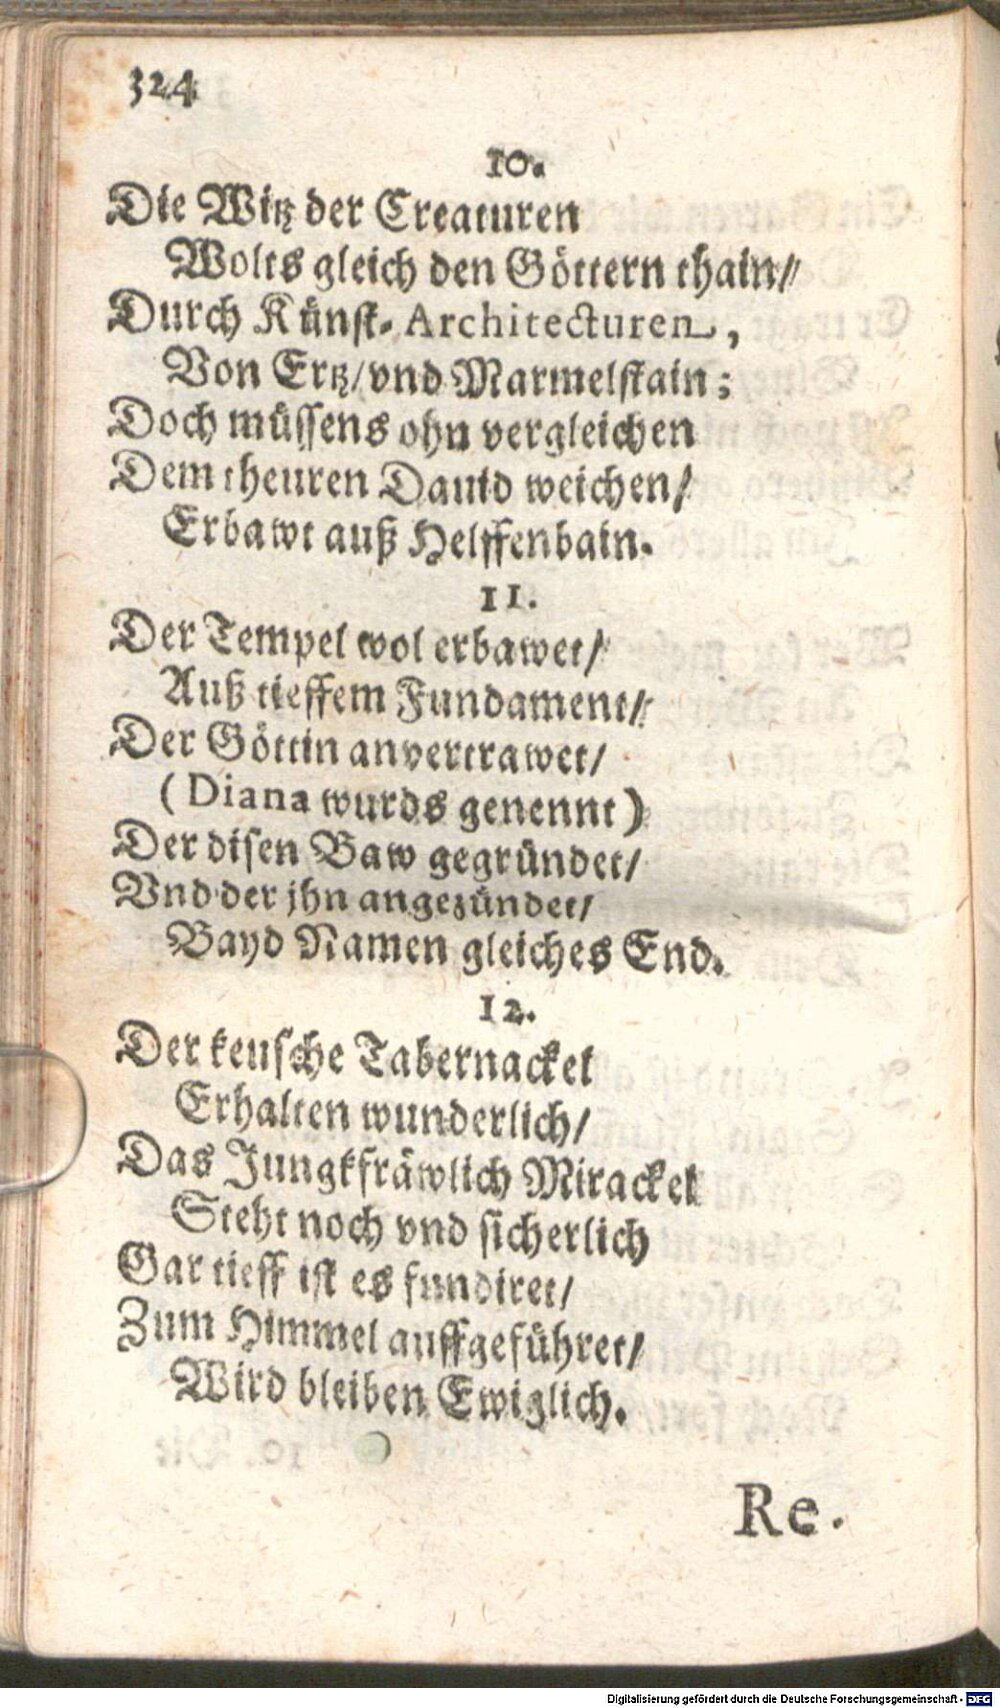 324
10.
Die Witz der Creaturen
Wolts gleich den Göttern thain/
Durch Künst-Architecturen,
Von Ertz/vnd Marmelstain;
Doch müssens ohn vergleichen
Dem theuren Dauid weichen/
Erbawt auß Helffenbain.
11.
Der Tempel wol erbawet/
Auß tieffem Fundament/
Der Göttin anvertrawet/
(Diana wurds genennt)
Der disen Baw gegründet/
Vnd der jhn angezündet/
Bayd Namen gleiches End.
12.
Der keusche Tabernackel
Erhalten wunderlich/
Das Jungkfräwlich Mirackel
Steht noch vnd sicherlich
Gar tieff ist es fundiret/
Zum Himmel auffgeführet/
Wird bleiben Ewiglich.
Re.
Digitalisierung gefördert durch die Deutsche Forschungsgemeinschaft - DFG